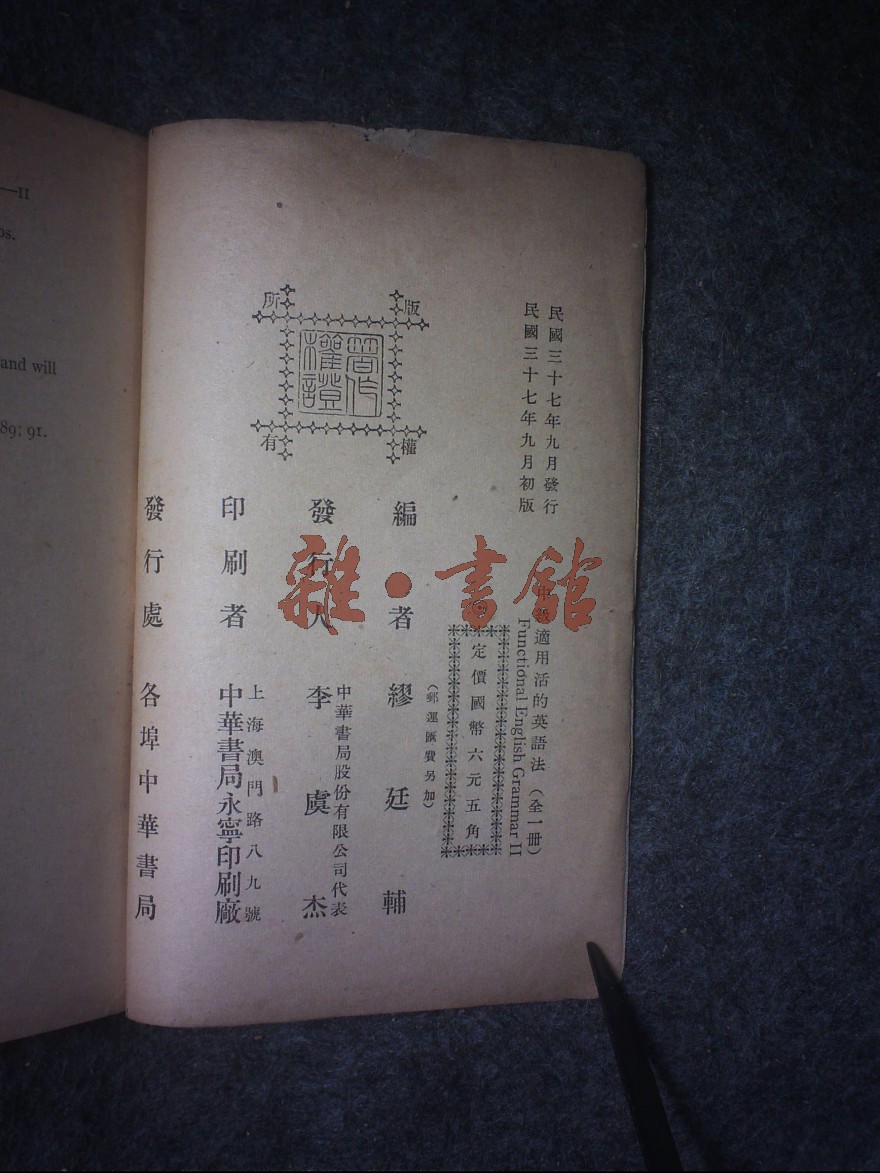 —II
os.
and will
89; 91.
民國三十七年九月發行
民國三十七年九月初版
適用活的英語法（全一冊）
Functional English Grammar II
定價國幣六元五角
（郵運匯費另加）
版權所有
著作權證
編者 繆廷輔
中華書局股份有限公司代表
發行人 李虞杰
上海澳門路八九號
印刷者 中華書局永寧印刷廠
發行處 各埠中華書局
雜·書館